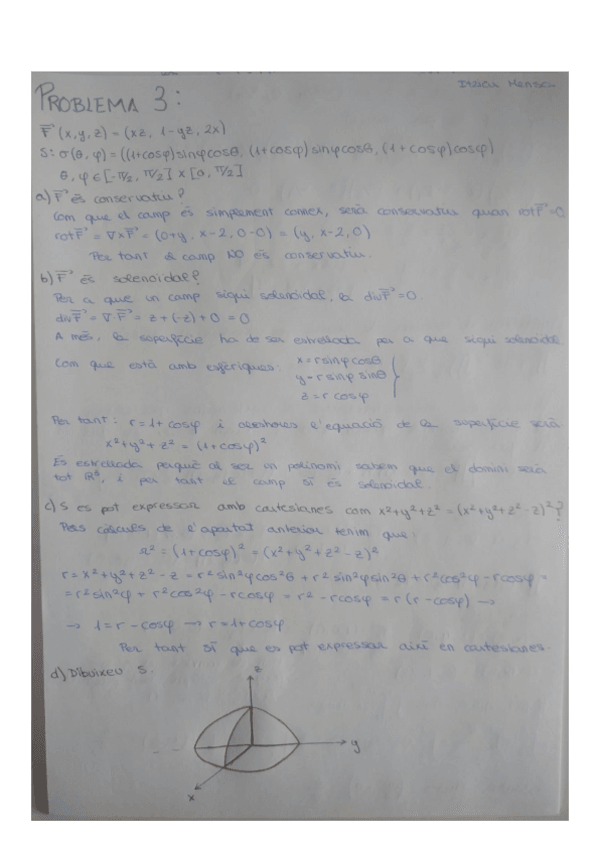 PROBLEMA 3:
F(x,y,z) = (xz, 1-yz, 2x)
S: σ(θ, φ) = ((1+cosφ)sinφcosθ, (1+cosφ)sinφcosθ, (1+cosφ)cosφ)
θ, φ ∈ [-π/2, π/2] x [0, π/2]
a) F és conservatiu?
Com que el camp és simplement connex, serà conservatiu quan rotF=0
rotF = ∇xF = (0+y, x-2, 0-0) = (y, x-2, 0)
Per tant el camp NO és conservatiu.
b) F és solenoidal?
Per a que un camp sigui solenoidal, la divF=0.
divF = ∇·F = z + (-z) + 0 = 0
A més, la superfície ha de ser estrellada per a que sigui solenoidal
Com que està amb esfèriques: x=rsinφcosθ
y=rsinφ sinθ
z=r cosφ
Per tant: r=1+cosφ i aleshores l'equació de la superfície serà
x²+y²+z² = (1+cosφ)²
És estrellada perquè al ser un polinomi sabem que el domini serà
tot R³, i per tant el camp sí és solenoidal.
c) S es pot expressar amb cartesianes com x²+y²+z² = (x²+y²+z²-z)²?
Pels càlculs de l'apartat anterior tenim que:
r² = (1+cosφ)² = (x²+y²+z²-z)²
r = x²+y²+z²-z = r²sin²φcos²θ + r²sin²φsin²θ + r²cos²φ - rcosφ =
= r²sin²φ + r²cos²φ - rcosφ = r² - rcosφ = r(r-cosφ) →
→ 1 = r - cosφ → r = 1+cosφ
Per tant sí que es pot expressar així en cartesianes.
d) Dibuixeu S.
z
y
x